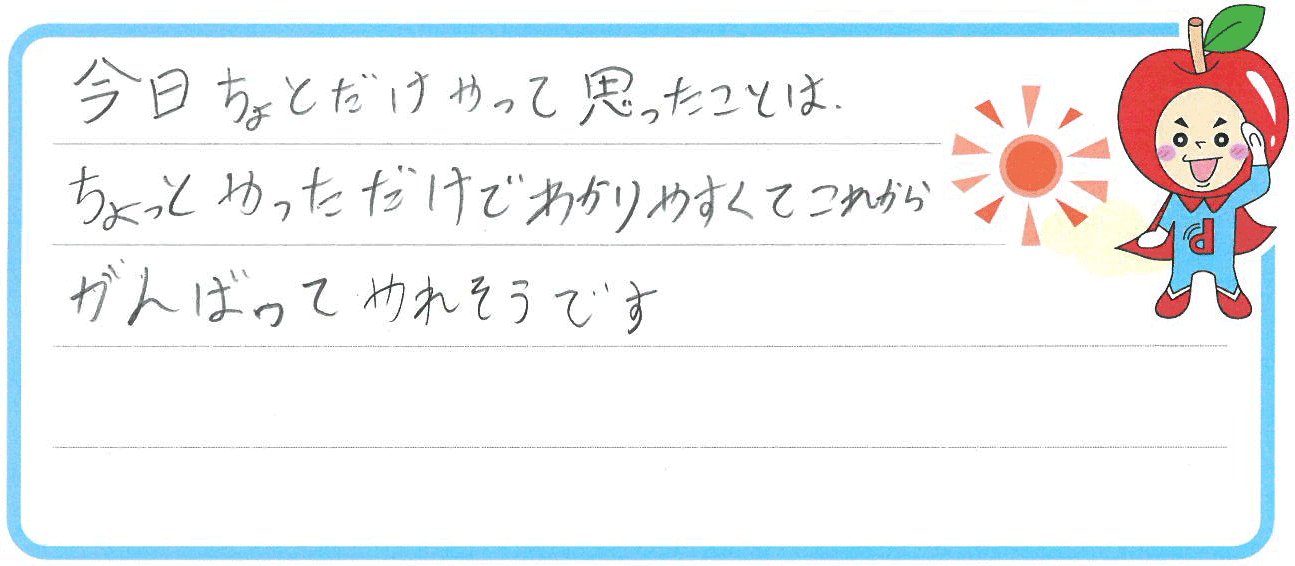 今日ちょとだけやって思ったことは.
ちょっとやっただけでわかりやすくてこれから
がんばってやれそうです